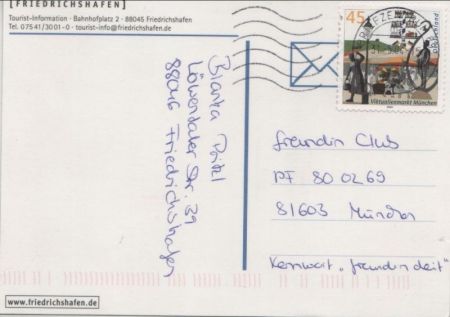 [FRIEDRICHSHAFEN]
Tourist-Information · Bahnhofplatz 2 · 88045 Friedrichshafen
Tel. 07541/3001-0 · tourist-info@friedrichshafen.de
Bianka
Löwentaler Str. 39
88046 Friedrichshafen
45
Deutschland
Viktualienmarkt München
freundin Club
PF 80 02 69
81603 München
Kennwort „freundin deit"
www.friedrichshafen.de